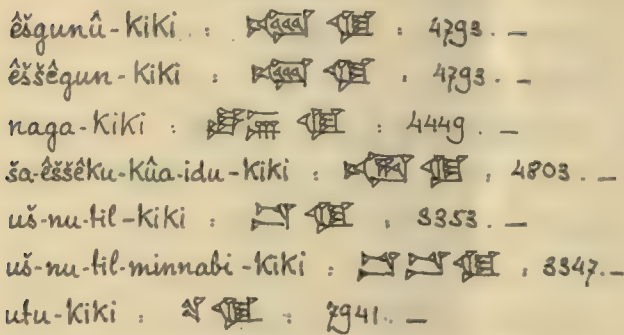 êšgunû-kiki : 𒆠 : 4793. —
êššêgun-kiki : 𒆠 : 4793. —
naga-kiki : 𒆠 : 4449. —
ša-êššêku-kûa-idu-kiki : 𒆠 : 4803. —
uš-nu-til-kiki : 𒆠 : 3353. —
uš-nu-til-minnabi-kiki : 𒆠 : 3347. —
utu-kiki : 𒌓 𒆠 : 7941. —